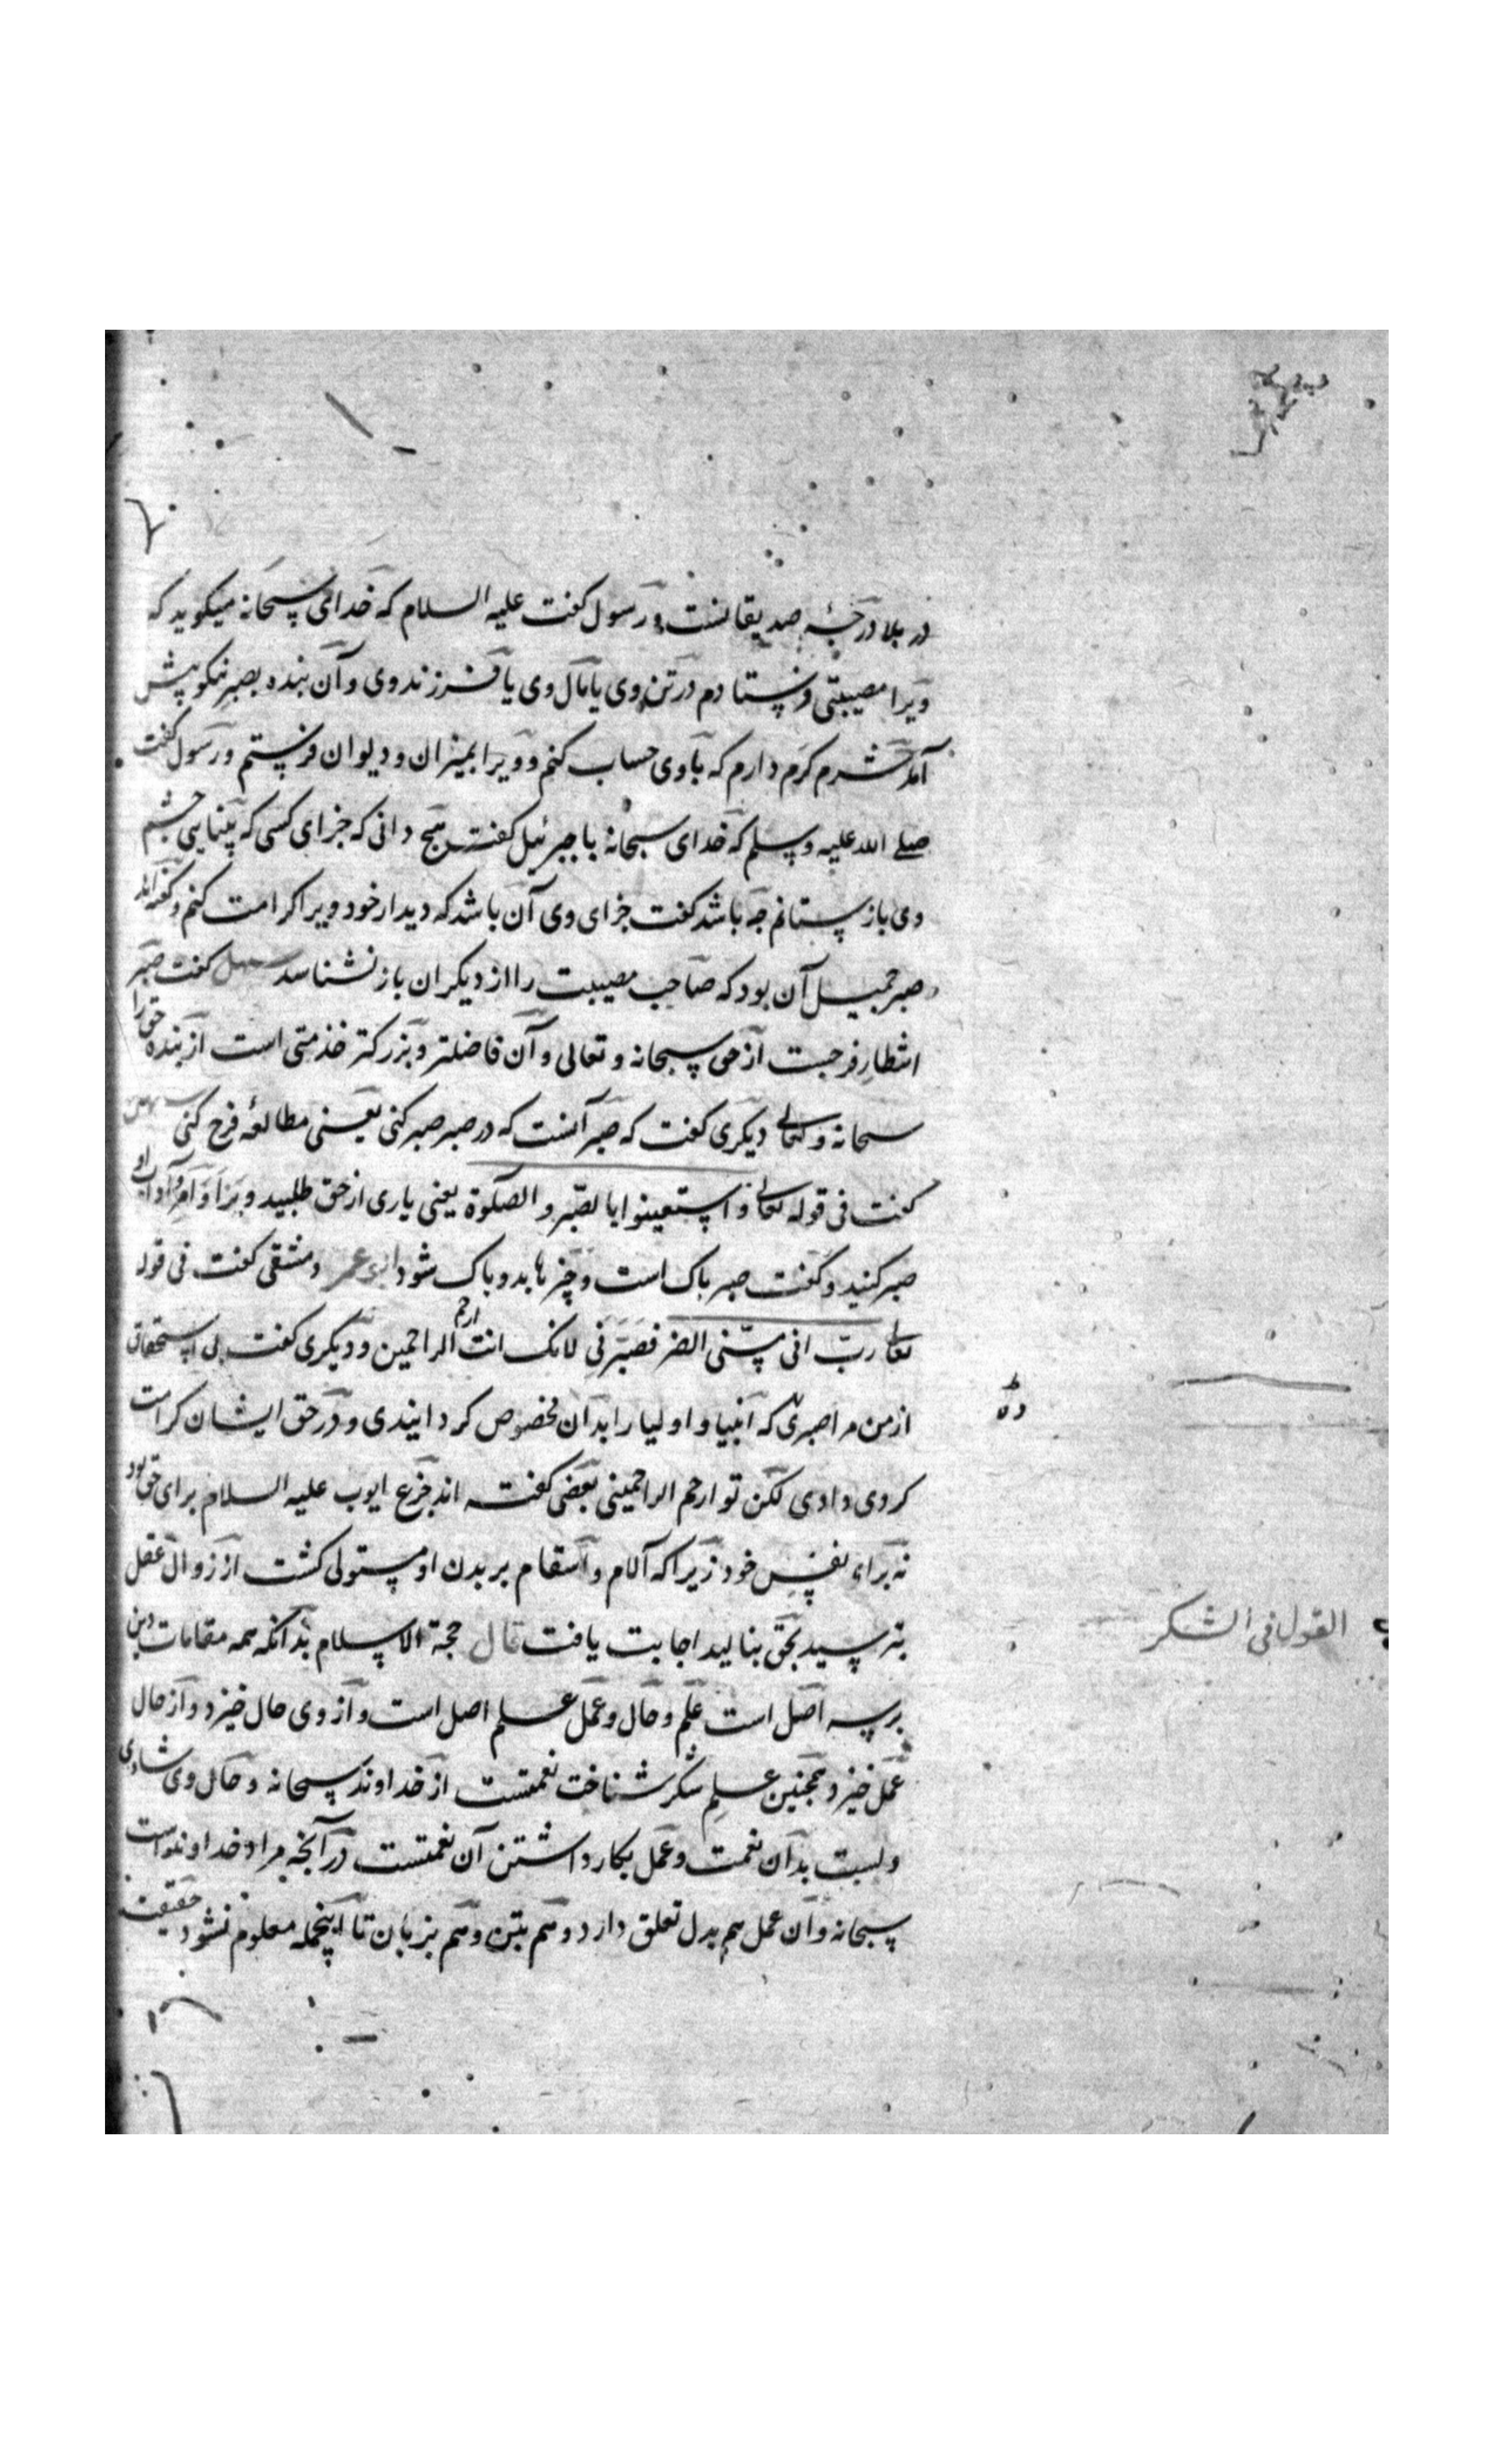 در بلا درجهٔ صدیقانست و رسول کفت علیه السلام که خدای سبحانه میکوید که
ویرا مصیبتی فرستادم در تن وی یا مال وی یا فرزند وی و آن بنده بصبر نیکو پیش
آمد شرم کرم دارم که با وی حساب کنم و ویرا بمیزان و دیوان فرستم و رسول کفت
صلی الله علیه وسلم که خدای سبحانه با جبرئیل کفت هیچ دانی که جزای کسی که بینایی چشم
وی باز ستانم چه باشد کفت جزای وی آن باشد که دیدار خود ویرا کرامت کنم و کفته اند
صبر جمیل آن بود که صاحب مصیبت را از دیکران باز نشناسد سهل کفت صبر
انتظار فرجست از حق سبحانه و تعالی و آن فاضلتر و بزرکتر خدمتی است از بنده حق را
سبحانه و تعالی دیکری کفت که صبر آنست که در صبر صبر کنی یعنی مطالعهٔ فرج کنی سهل
کفت فی قوله تعالی و استعینوا بالصبر و الصلوة یعنی یاری از حق طلبید و بر او امر و آداب او
صبر کنید و کفت صبر پاک است و چیزها بدو پاک شود ابی عمر دمشقی کفت فی قوله
تعالی رب انی مسنی الضر فصبرنی لانک انت ارحم الراحمین و دیکری کفت بی استحقاق
از من مرا صبری که انبیا و اولیا را بدان مخصوص کردانیدی و در حق ایشان کرامت
کردی دادی لکن تو ارحم الراحمینی بعضی کفته اند جزع ایوب علیه السلام برای حق بود
نه براء نفس خود زیرا که آلام و اسقام بر بدن او مستولی کشت از زوال عقل
بترسید بحق بنالید اجابت یافت قال حجة الاسلام بدانکه همه مقامات دین
بر سه اصل است علم و حال و عمل علم اصل است و از وی حال خیزد و از حال
عمل خیزد همچنین علم شکر شناخت نعمتست از خداوند سبحانه و حال وی شادی
دلست بدان نعمت و عمل بکار داشتن آن نعمتست در آنچه مراد خداوندست
سبحانه و آن عمل هم بدل تعلق دارد و هم بتن و هم بزبان تا اینجمله معلوم نشود حقیقت
القول فی الشکر